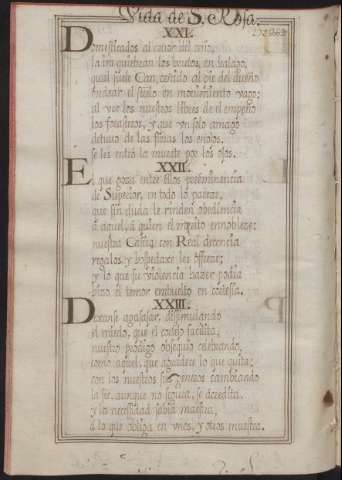 Vida de S. Rosa.
XXI.
Domesticados al calor del ceño,
la ira quiebran los brutos, en halago,
qual suele Can, ceñido al pie del dueño
barrer el suelo en movimiento vago:
al ver los nuestros libres de el empeño
los forasteros, y que un solo amago
detuvo de las fieras los enojos,
se les entró la muerte por los ojos.
XXII.
El que goza entre ellos preeminencia
de Superior, en todo lo parece,
que sin duda le rinden obediencia
à aquel, à quien el respeto ennoblece:
nuestra Caziq con Real decencia
regalos, y hospedaxe les ofrece;
y lo que su violencia hazer podia
hizo el temor embuelto en cortesia.
XXIII.
Dexanse agasajar, desimulando
el miedo, que el cortejo facilita,
nuestro prodigo obsequio celebrando,
como aquel, que agradece lo que quita:
con los nuestros sus generos cambiando
la fee, aunque no segura, se acredita,
y la necessidad sabia maestra,
à lo que obliga en unos, y otros muestra.